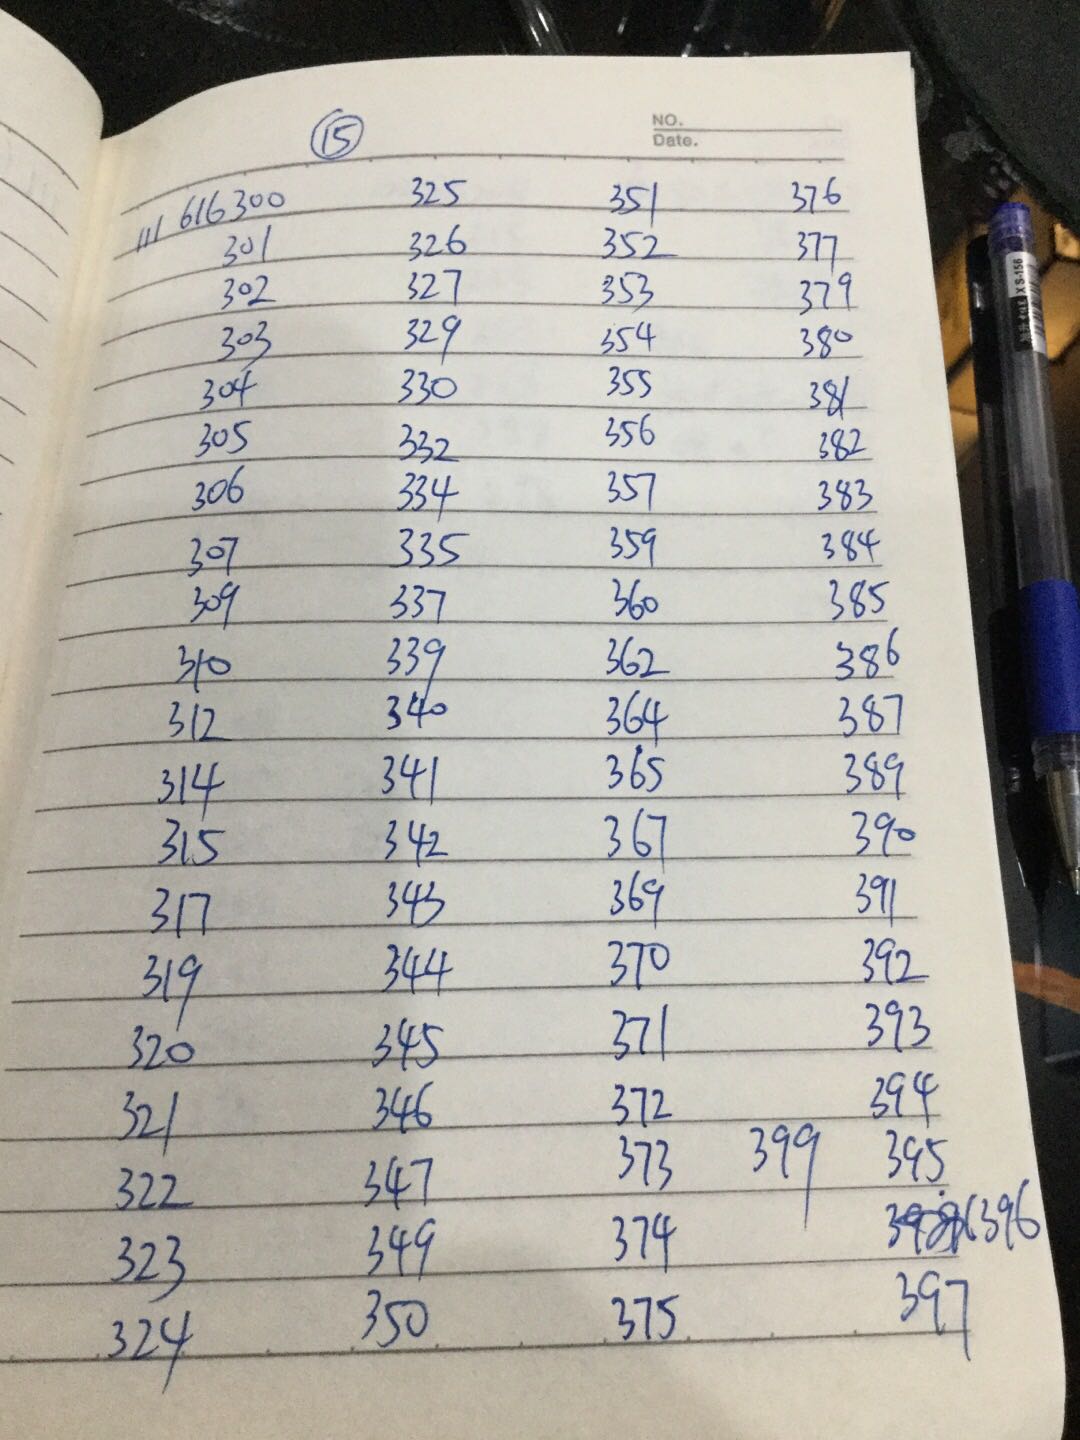 15
NO.
Date.
111 616300 325 351 376
301 326 352 377
302 327 353 379
303 329 354 380
304 330 355 381
305 332 356 382
306 334 357 383
307 335 359 384
309 337 360 385
310 339 362 386
312 340 364 387
314 341 365 389
315 342 367 390
317 343 369 391
319 344 370 392
320 345 371 393
321 346 372 394
322 347 373 399 395
323 349 374 396
324 350 375 397
XS-156